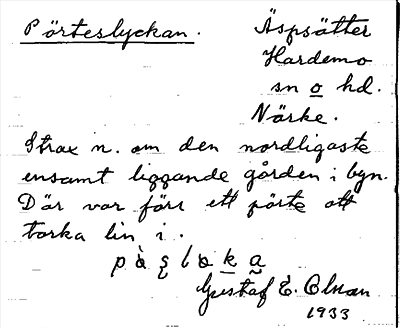 Pörteslyckan.
Äspsätter
Hardemo
sn o hd.
Närke.
Strax n. om den nordligaste
ensamt liggande gården i byn.
Där var förr ett pörte att
torka lin i.
Gustaf E. Olman
1933